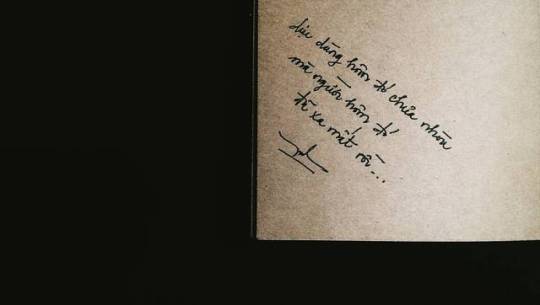 dịu dàng hôm đó chưa nhòa
mà người hôm đó
đã xa mất rồi...